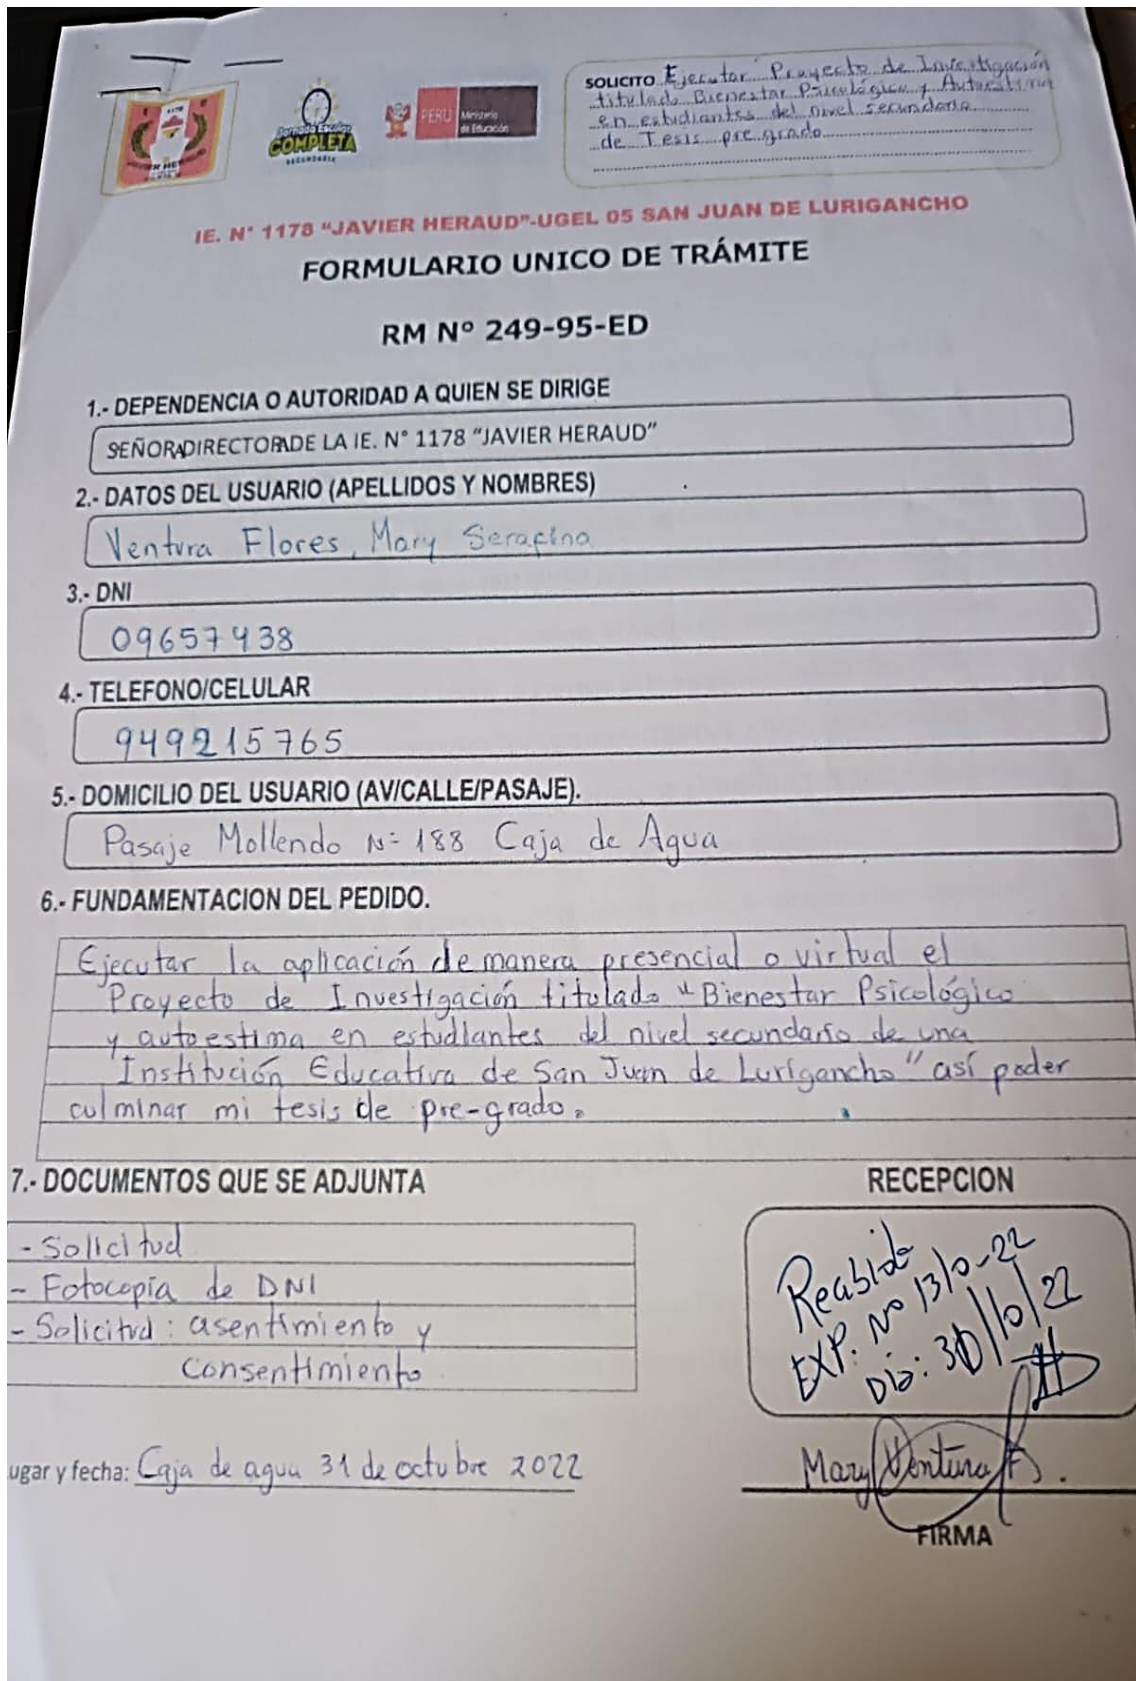 SOLICITO Ejecutar Proyecto de Investigación
titulado Bienestar Psicológico y Autoestima
en estudiantes del nivel secundaria
de Tesis pre grado
Jornada Escolar
COMPLETA
SECUNDARIA
PERÚ Ministerio
de Educación
IE. N° 1178 "JAVIER HERAUD"-UGEL 05 SAN JUAN DE LURIGANCHO
FORMULARIO UNICO DE TRÁMITE
RM Nº 249-95-ED
1.- DEPENDENCIA O AUTORIDAD A QUIEN SE DIRIGE
SEÑORA DIRECTORA DE LA IE. N° 1178 "JAVIER HERAUD"
2.- DATOS DEL USUARIO (APELLIDOS Y NOMBRES)
Ventura Flores, Mary Serafina
3.- DNI
09657438
4.- TELEFONO/CELULAR
949215765
5.- DOMICILIO DEL USUARIO (AV/CALLE/PASAJE).
Pasaje Mollendo Nº 188 Caja de Agua
6.- FUNDAMENTACION DEL PEDIDO.
Ejecutar la aplicación de manera presencial o virtual el
Proyecto de Investigación titulado "Bienestar Psicológico
y autoestima en estudiantes del nivel secundario de una
Institución Educativa de San Juan de Lurigancho" así poder
culminar mi tesis de pre-grado.
7.- DOCUMENTOS QUE SE ADJUNTA
- Solicitud
- Fotocopia de DNI
- Solicitud: asentimiento y
consentimiento
RECEPCION
EXP. Nº 1310-22
Día: 31/10/22
ugar y fecha: Caja de agua 31 de octubre 2022
Mary Ventura F.
FIRMA